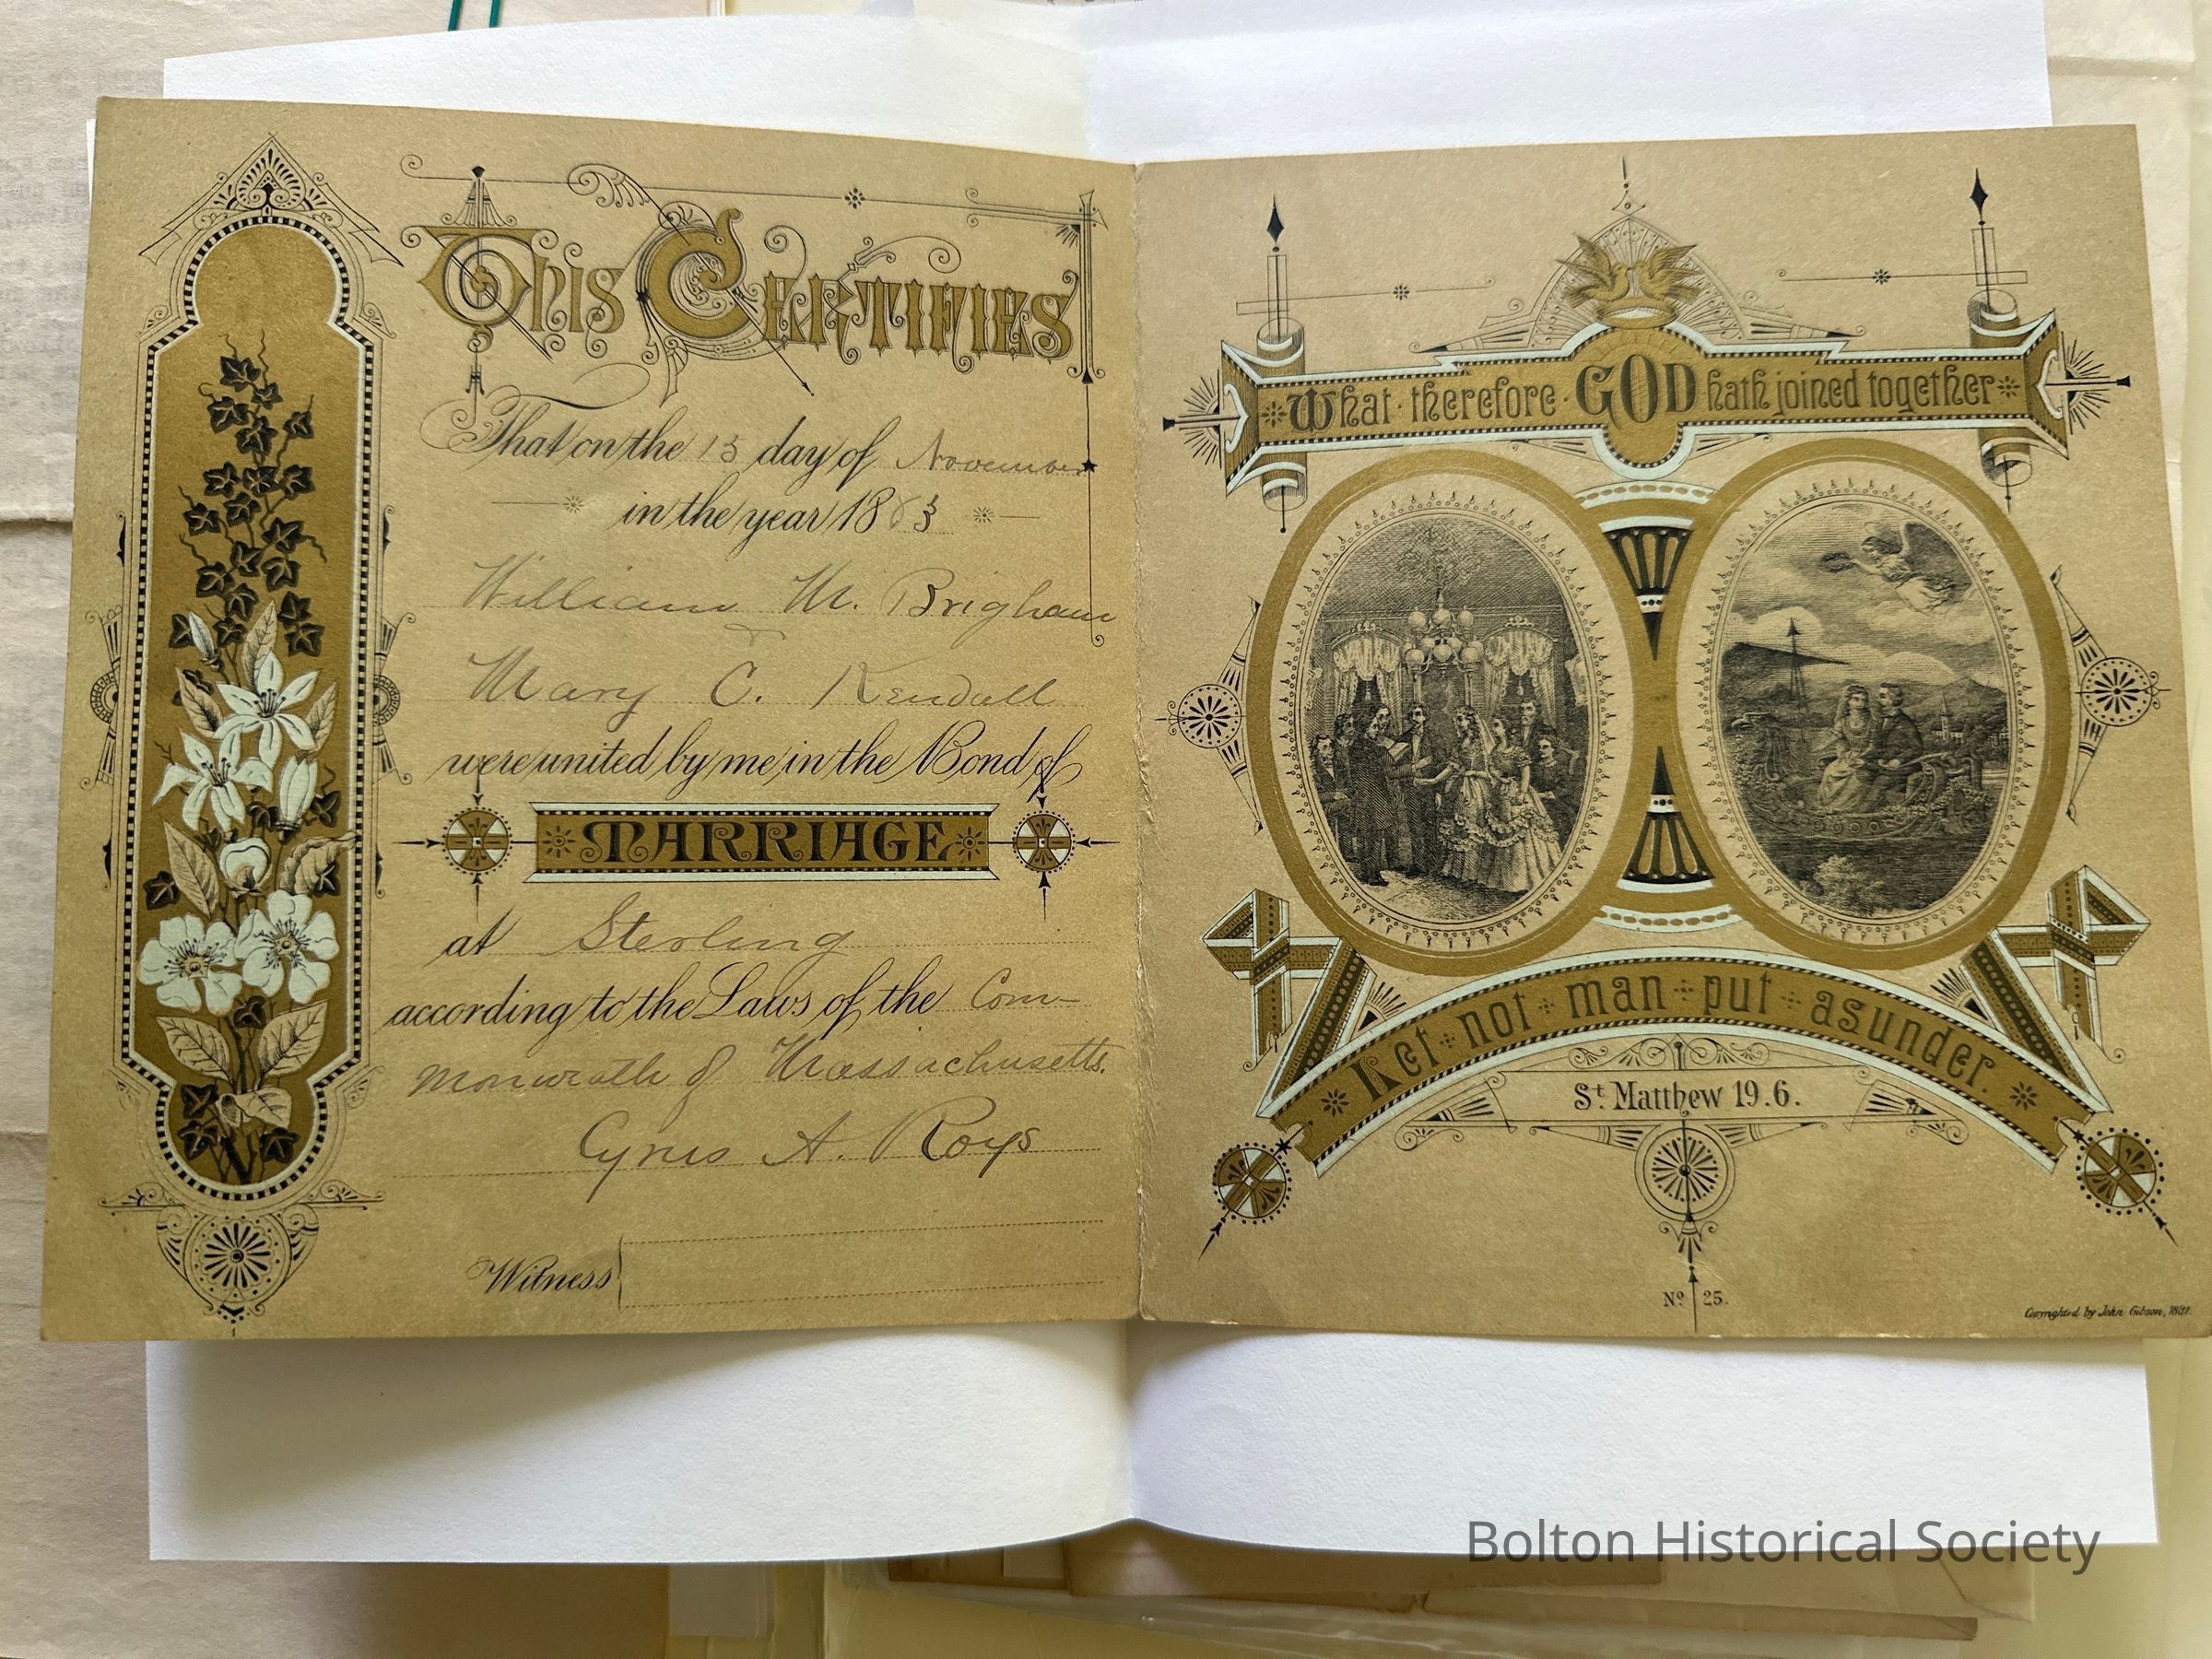 This Certifies
That on the 13 day of November
in the year 1883
William M. Brigham
Mary C. Kendall
were united by me in the Bond of
MARRIAGE
at Sterling
according to the Laws of the Com-
monwealth of Massachusetts.
Cyrus A. Roys
Witness
What therefore GOD hath joined together
Let not man put asunder.
St. Matthew 19.6.
No 25.
Copyrighted by John Gibson, 1881.
Bolton Historical Society